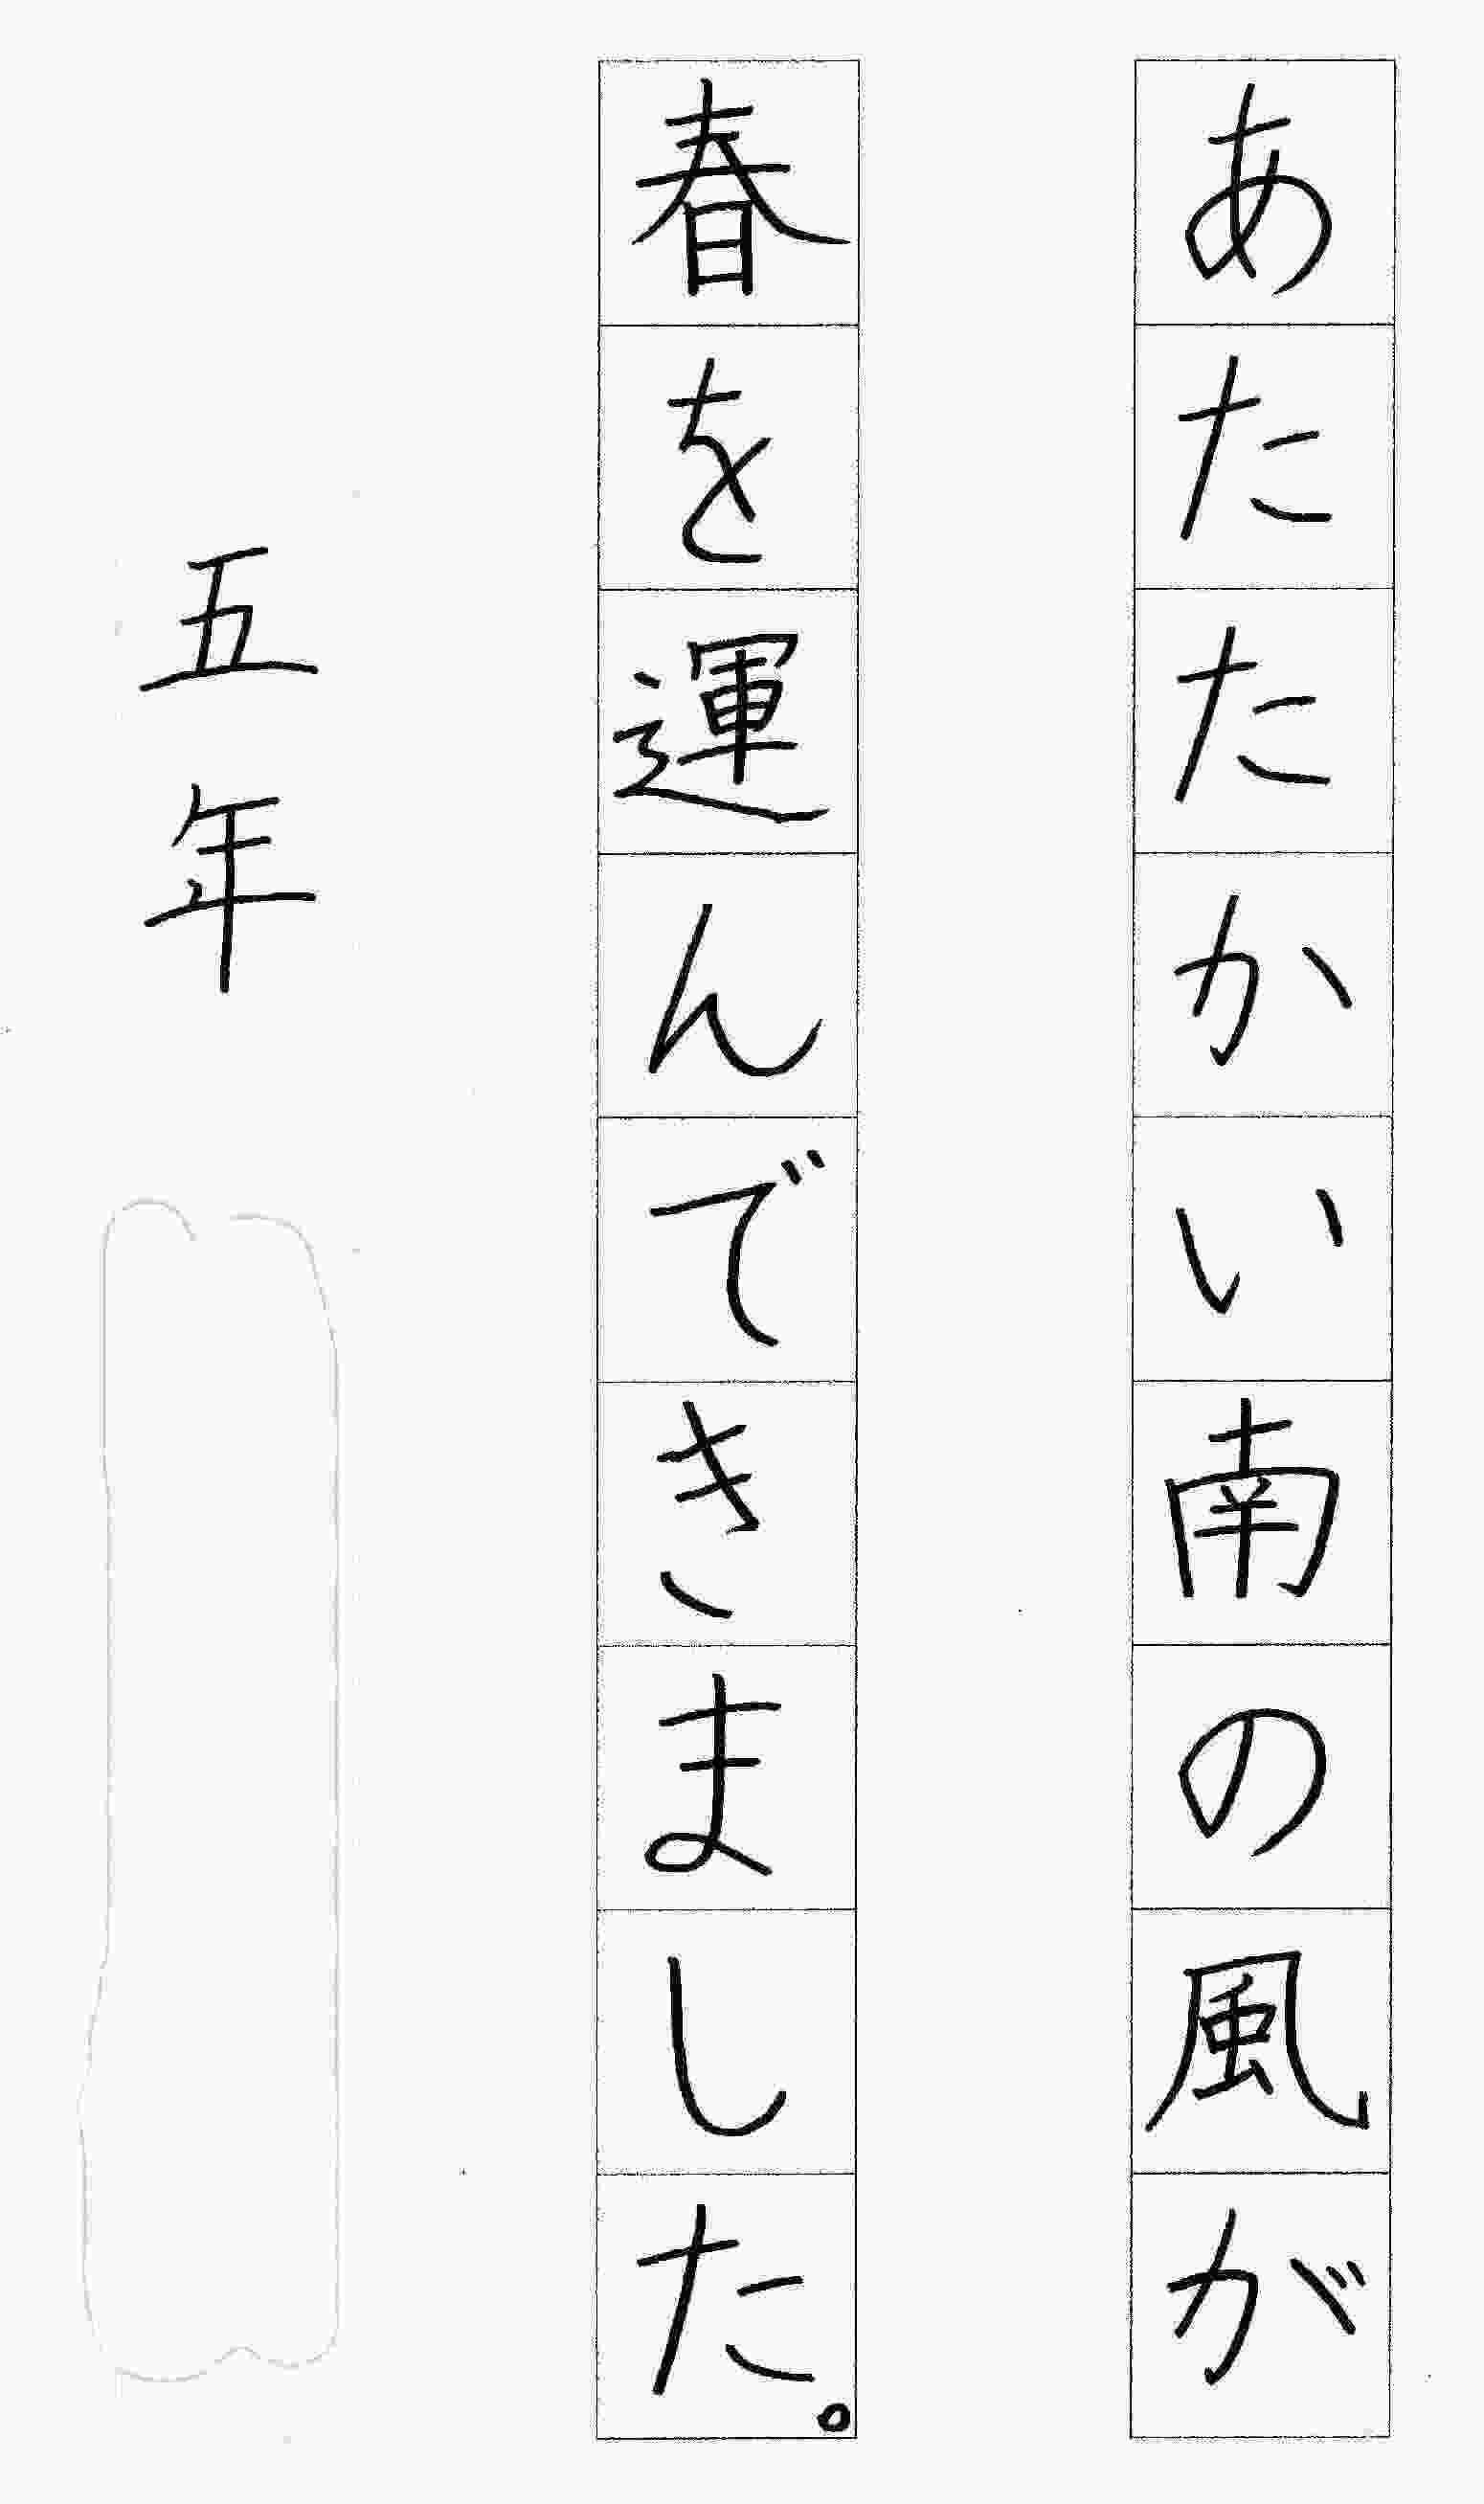 あたたかい南の風が
春を運んできました。
五年